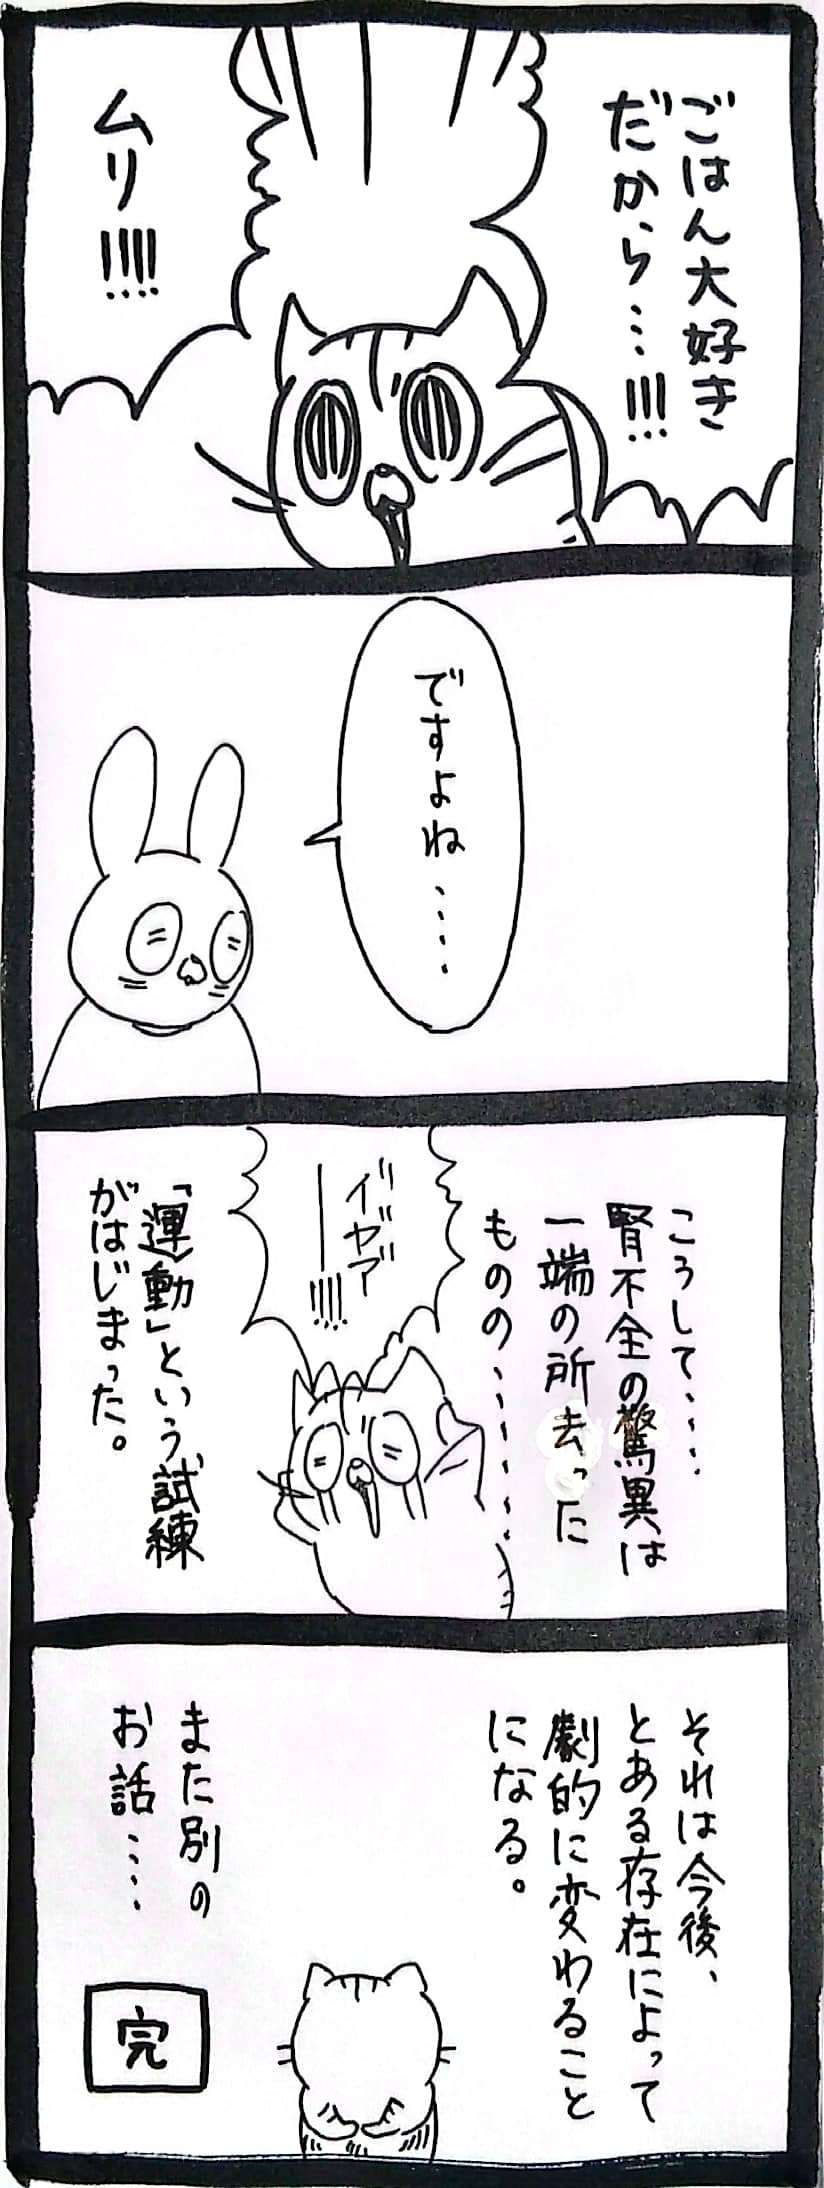 ごはん大好き
だから…!!!
ムリ!!!!
ですよね……
こうして……
腎不全の驚異は
一端の所去った
ものの………
イ゛ヤ゛ア゛
ー!!!!
「運動」という試練
がはじまった。
それは今後、
とある存在によって
劇的に変わること
になる。
また別の
お話……
完